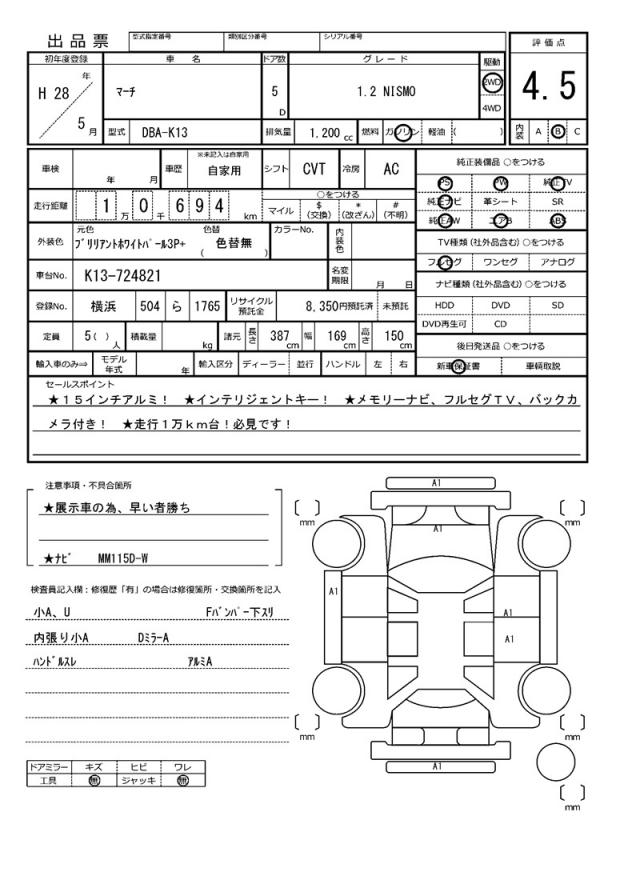 出品票
型式指定番号 類別区分番号 シリアル番号
初年度登録 車名 ドア数 グレード 駆動 評価点
H 28 年 5 月
マーチ
5 D
1.2 NISMO
2WD
4WD
4.5
型式 DBA-K13 排気量 1.200 cc 燃料 ガソリン 軽油 ( )
内装 A B C
車検 年 月 車歴 ※未記入は自家用 自家用 シフト CVT 冷房 AC
純正装備品 ○をつける
PS PW 純正TV
純正ナビ 革シート SR
純正AW エアB ABS
走行距離 1万0千694 km
○をつける
マイル $(交換) *(改ざん) #(不明)
外装色 元色 ブリリアントホワイトパール3P+ 色替 ( 色替無 ) カラーNo. 内装色
TV種類(社外品含む)○をつける
フルセグ ワンセグ アナログ
車台No. K13-724821 名変期限 月 日
ナビ種類(社外品含む)○をつける
HDD DVD SD
DVD再生可 CD
登録No. 横浜 504 ら 1765 リサイクル預託金 8,350円預託済 未預託
定員 5( )人 積載量 kg 諸元 長さ 387cm 幅 169cm 高さ 150cm
後日発送品 ○をつける
新車保証書 車輌取説
輸入車のみ⇒ モデル年式 年 輸入区分 ディーラー 並行 ハンドル 左 右
セールスポイント
★15インチアルミ! ★インテリジェントキー! ★メモリーナビ、フルセグTV、バックカ
メラ付き! ★走行1万km台!必見です!
注意事項・不具合箇所
★展示車の為、早い者勝ち
★ナビ MM115D-W
検査員記入欄:修復歴「有」の場合は修復箇所・交換箇所を記入
小A、U Fバンパー下スリ
内張り小A DミラーA
ハンドルスレ アルミA
A1
A1
A1
A1
A1
A1
mm
mm
mm
mm
mm
ドアミラー キズ ヒビ ワレ
工具 無 ジャッキ 無